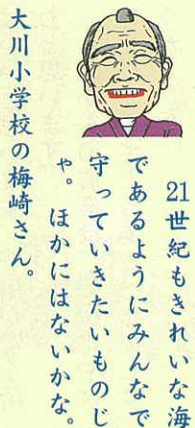 21世紀もきれいな海
であるようにみんなで
守っていきたいものじ
ゃ。ほかにはないかな。
大川小学校の梅崎さん。